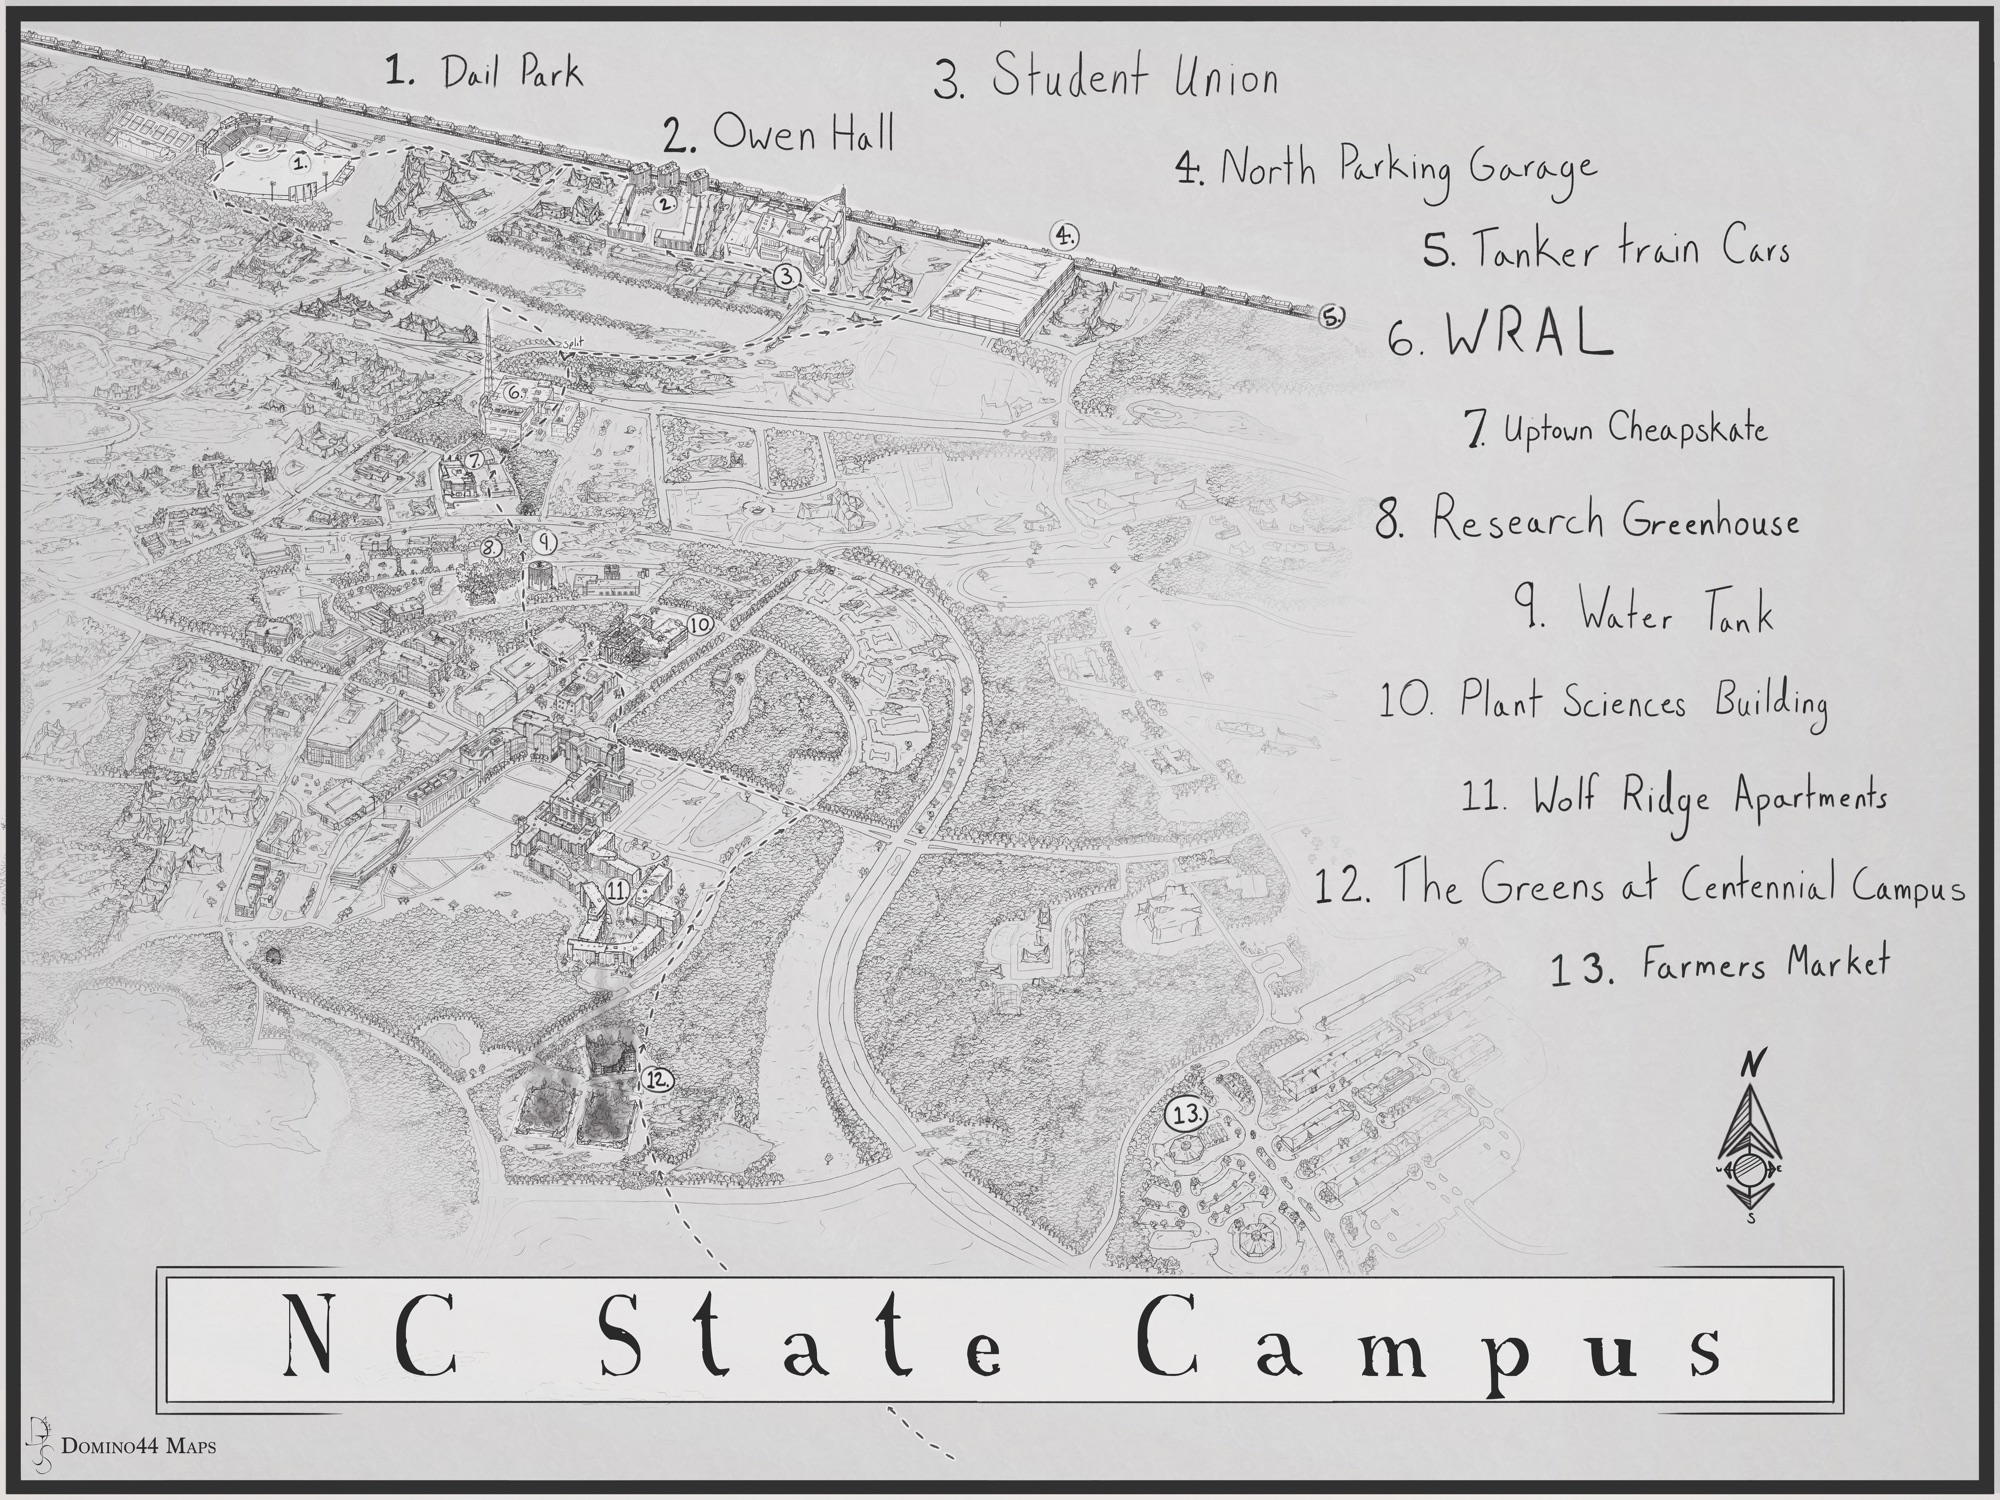 1. Dail Park
2. Owen Hall
3. Student Union
4. North Parking Garage
5. Tanker train Cars
6. WRAL
7. Uptown Cheapskate
8. Research Greenhouse
9. Water Tank
10. Plant Sciences Building
11. Wolf Ridge Apartments
12. The Greens at Centennial Campus
13. Farmers Market
1.
2.
3.
4.
5.
split
6.
7.
8.
9.
10
11
12.
13.
N
W E
S
NC State Campus
DS
Domino44 Maps